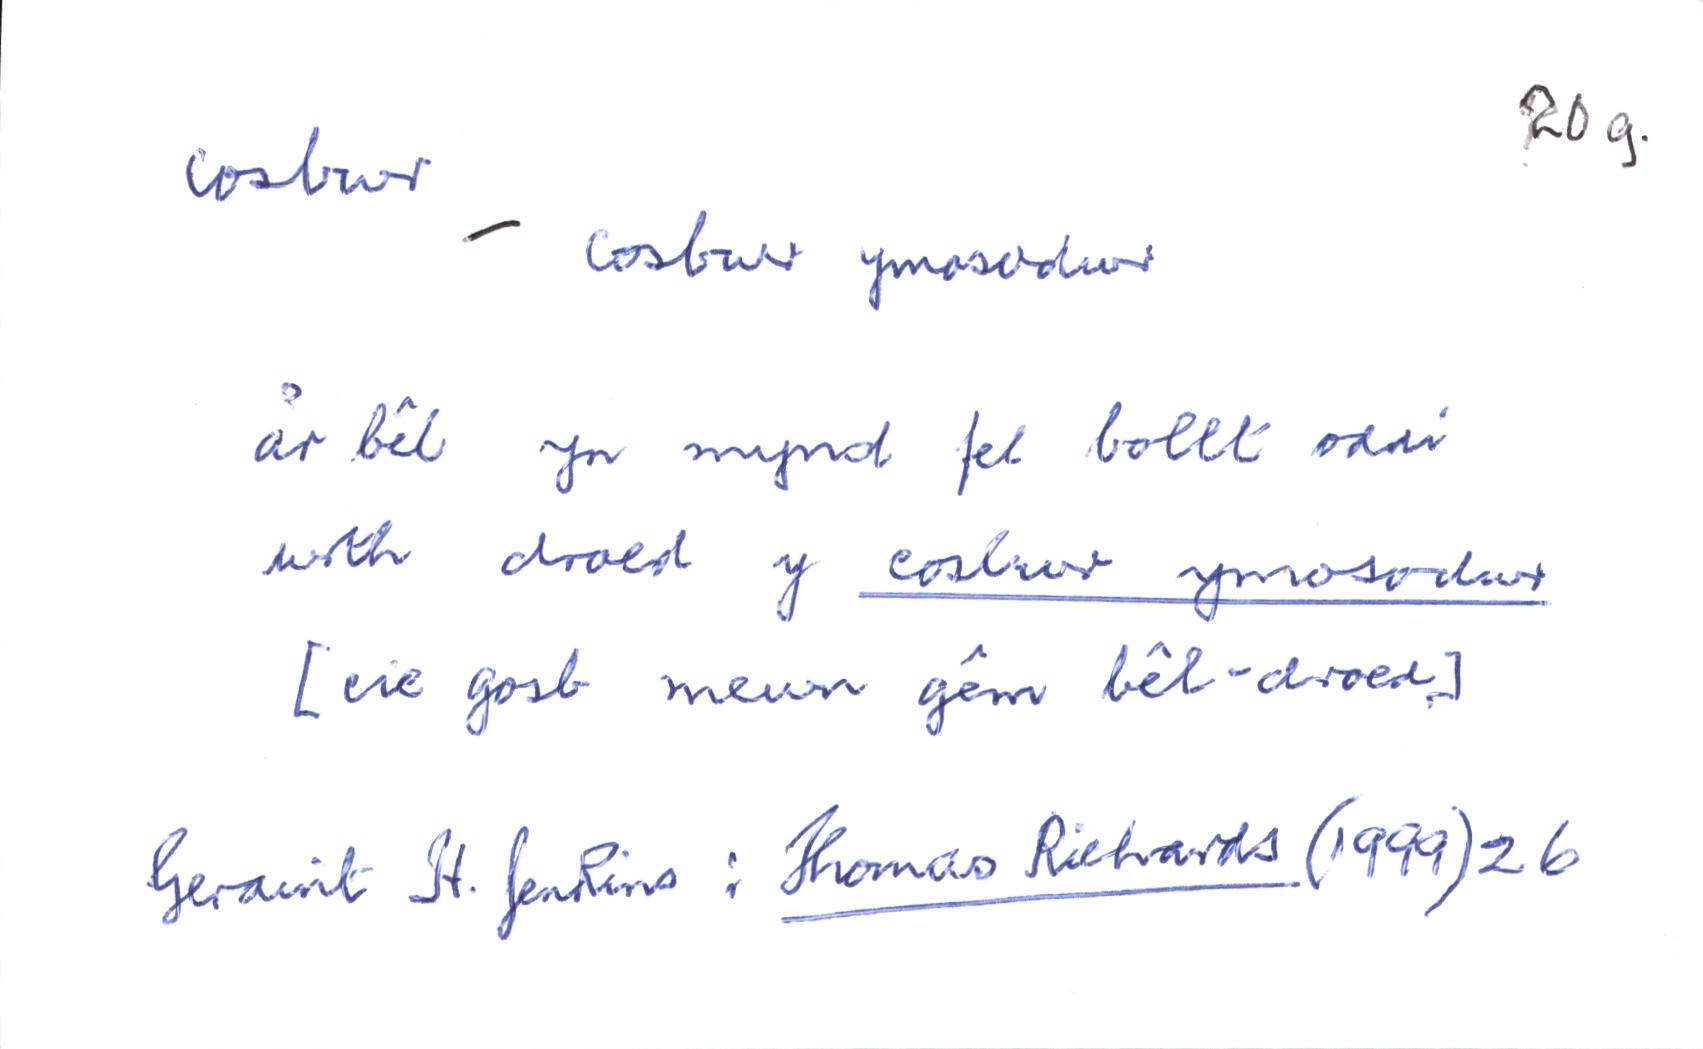 20 g.
cosbwr
– cosbwr ymosodwr
a'r bêl yn mynd fel bollt oddi
wrth droed y cosbwr ymosodwr
[cic gosb mewn gêm bêl-droed]
Geraint H. Jenkins : Thomas Richards (1999) 26